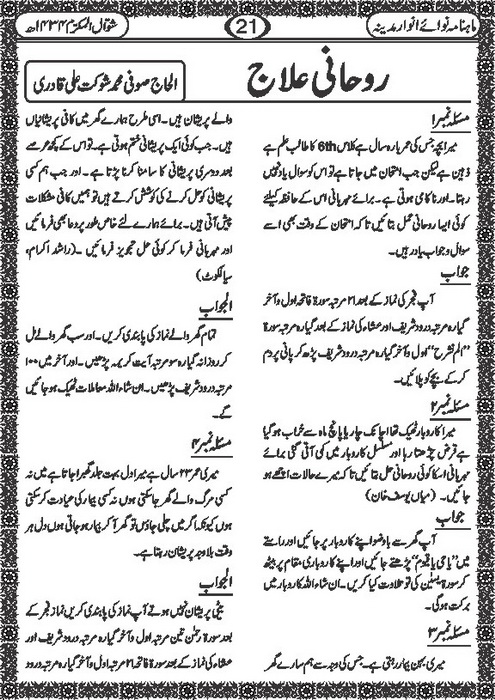 ماہنامہ نوائے انوار مدینہ
21
شوال المکرم ۱۴۳۴ھ
روحانی علاج
الحاج صوفی محمد شوکت علی قادری
مسئلہ نمبر ۱
میرا بچہ جس کی عمر بارہ سال ہے کلاس 6th کا طالب علم ہے
ذہین ہے لیکن جب امتحان میں جاتا ہے تو اس کو سوال یاد نہیں
رہتا۔ اور ناکامی ہوتی ہے۔ برائے مہربانی اس کے حافظہ کیلئے
کوئی ایسا روحانی عمل بتائیں تاکہ امتحان کے وقت بھی اسے
سوال و جواب یاد رہیں۔
جواب
آپ فجر کی نماز کے بعد ۲۱ مرتبہ سورۃ فاتحہ اول و آخر
گیارہ مرتبہ درود شریف اور عشاء کی نماز کے بعد گیارہ مرتبہ سورۃ
"الم نشرح" اول و آخر گیارہ مرتبہ درود شریف پڑھ کر پانی پر دم
کر کے بچے کو پلائیں۔
مسئلہ نمبر ۲
میرا کاروبار ٹھیک تھا اچانک چار یا پانچ ماہ سے خراب ہو گیا
ہے قرض چڑھتا رہا اور مسلسل کاروبار میں کمی آتی گئی برائے
مہربانی اسکا کوئی روحانی عمل بتائیں تاکہ میرے حالات اچھے ہو
جائیں۔ (میاں یوسف خان)
جواب
آپ گھر سے با وضو اپنے کاروبار پر جائیں اور راستے
میں "یا حی یا قیوم" پڑھتے جائیں اور اپنے کاروباری مقام پر بیٹھ
کر سورۃ یٰسین کی تو تلاوت کیا کریں۔ ان شاء اللہ کاروبار میں
برکت ہو گی۔
مسئلہ نمبر ۳
میری بہن بیمار رہتی ہے۔ جس کی وجہ سے ہم سارے گھر
والے پریشان ہیں۔ اسی طرح ہمارے گھر میں کافی پریشانیاں
ہیں۔ جب کوئی ایک پریشانی ختم ہوتی ہے۔ تو اس کے کچھ عرصے
بعد دوسری پریشانی کا سامنا کرنا پڑتا ہے۔ اور جب ہم کسی
پریشانی کو حل کرنے کی کوشش کرتے ہیں تو ہمیں کافی مشکلات
پیش آتی ہیں۔ برائے ہمارے لئے خاص طور پر دعا بھی فرمائیں
اور مہربانی فرما کر کوئی حل تجویز فرمائیں ۔(راشد اکرام،
سیالکوٹ)
الجواب
تمام گھر والے نماز کی پابندی کریں۔ اور سب گھر والے مل
کر روزانہ گیارہ سو مرتبہ آیت کریمہ پڑھیں۔ اور آخر میں ۱۰۰
مرتبہ درود شریف پڑھیں۔ ان شاء اللہ معاملات ٹھیک ہو جائیں
گے۔
مسئلہ نمبر ۴
میری عمر ۲۳ سال ہے میرا دل بہت جلد گھبرا جاتا ہے میں نہ
کسی مرگ والے گھر جا سکتی ہوں نہ کسی بیمار کی عیادت کر سکتی
ہوں کیونکہ اگر میں چلی جاؤں تو گھر آ کر بیمار ہو جاتی ہوں دل ہر
وقت بلا وجہ پریشان رہتا ہے۔
الجواب
بیٹی پریشان نہیں ہوتے آپ نماز کی پابندی کریں نماز فجر کے
بعد سورۃ رحمٰن تین مرتبہ اول و آخر گیارہ مرتبہ درود شریف اور
عشاء کی نماز کے بعد سورۃ فاتحہ ۲۱ مرتبہ اول و آخر گیارہ مرتبہ درود